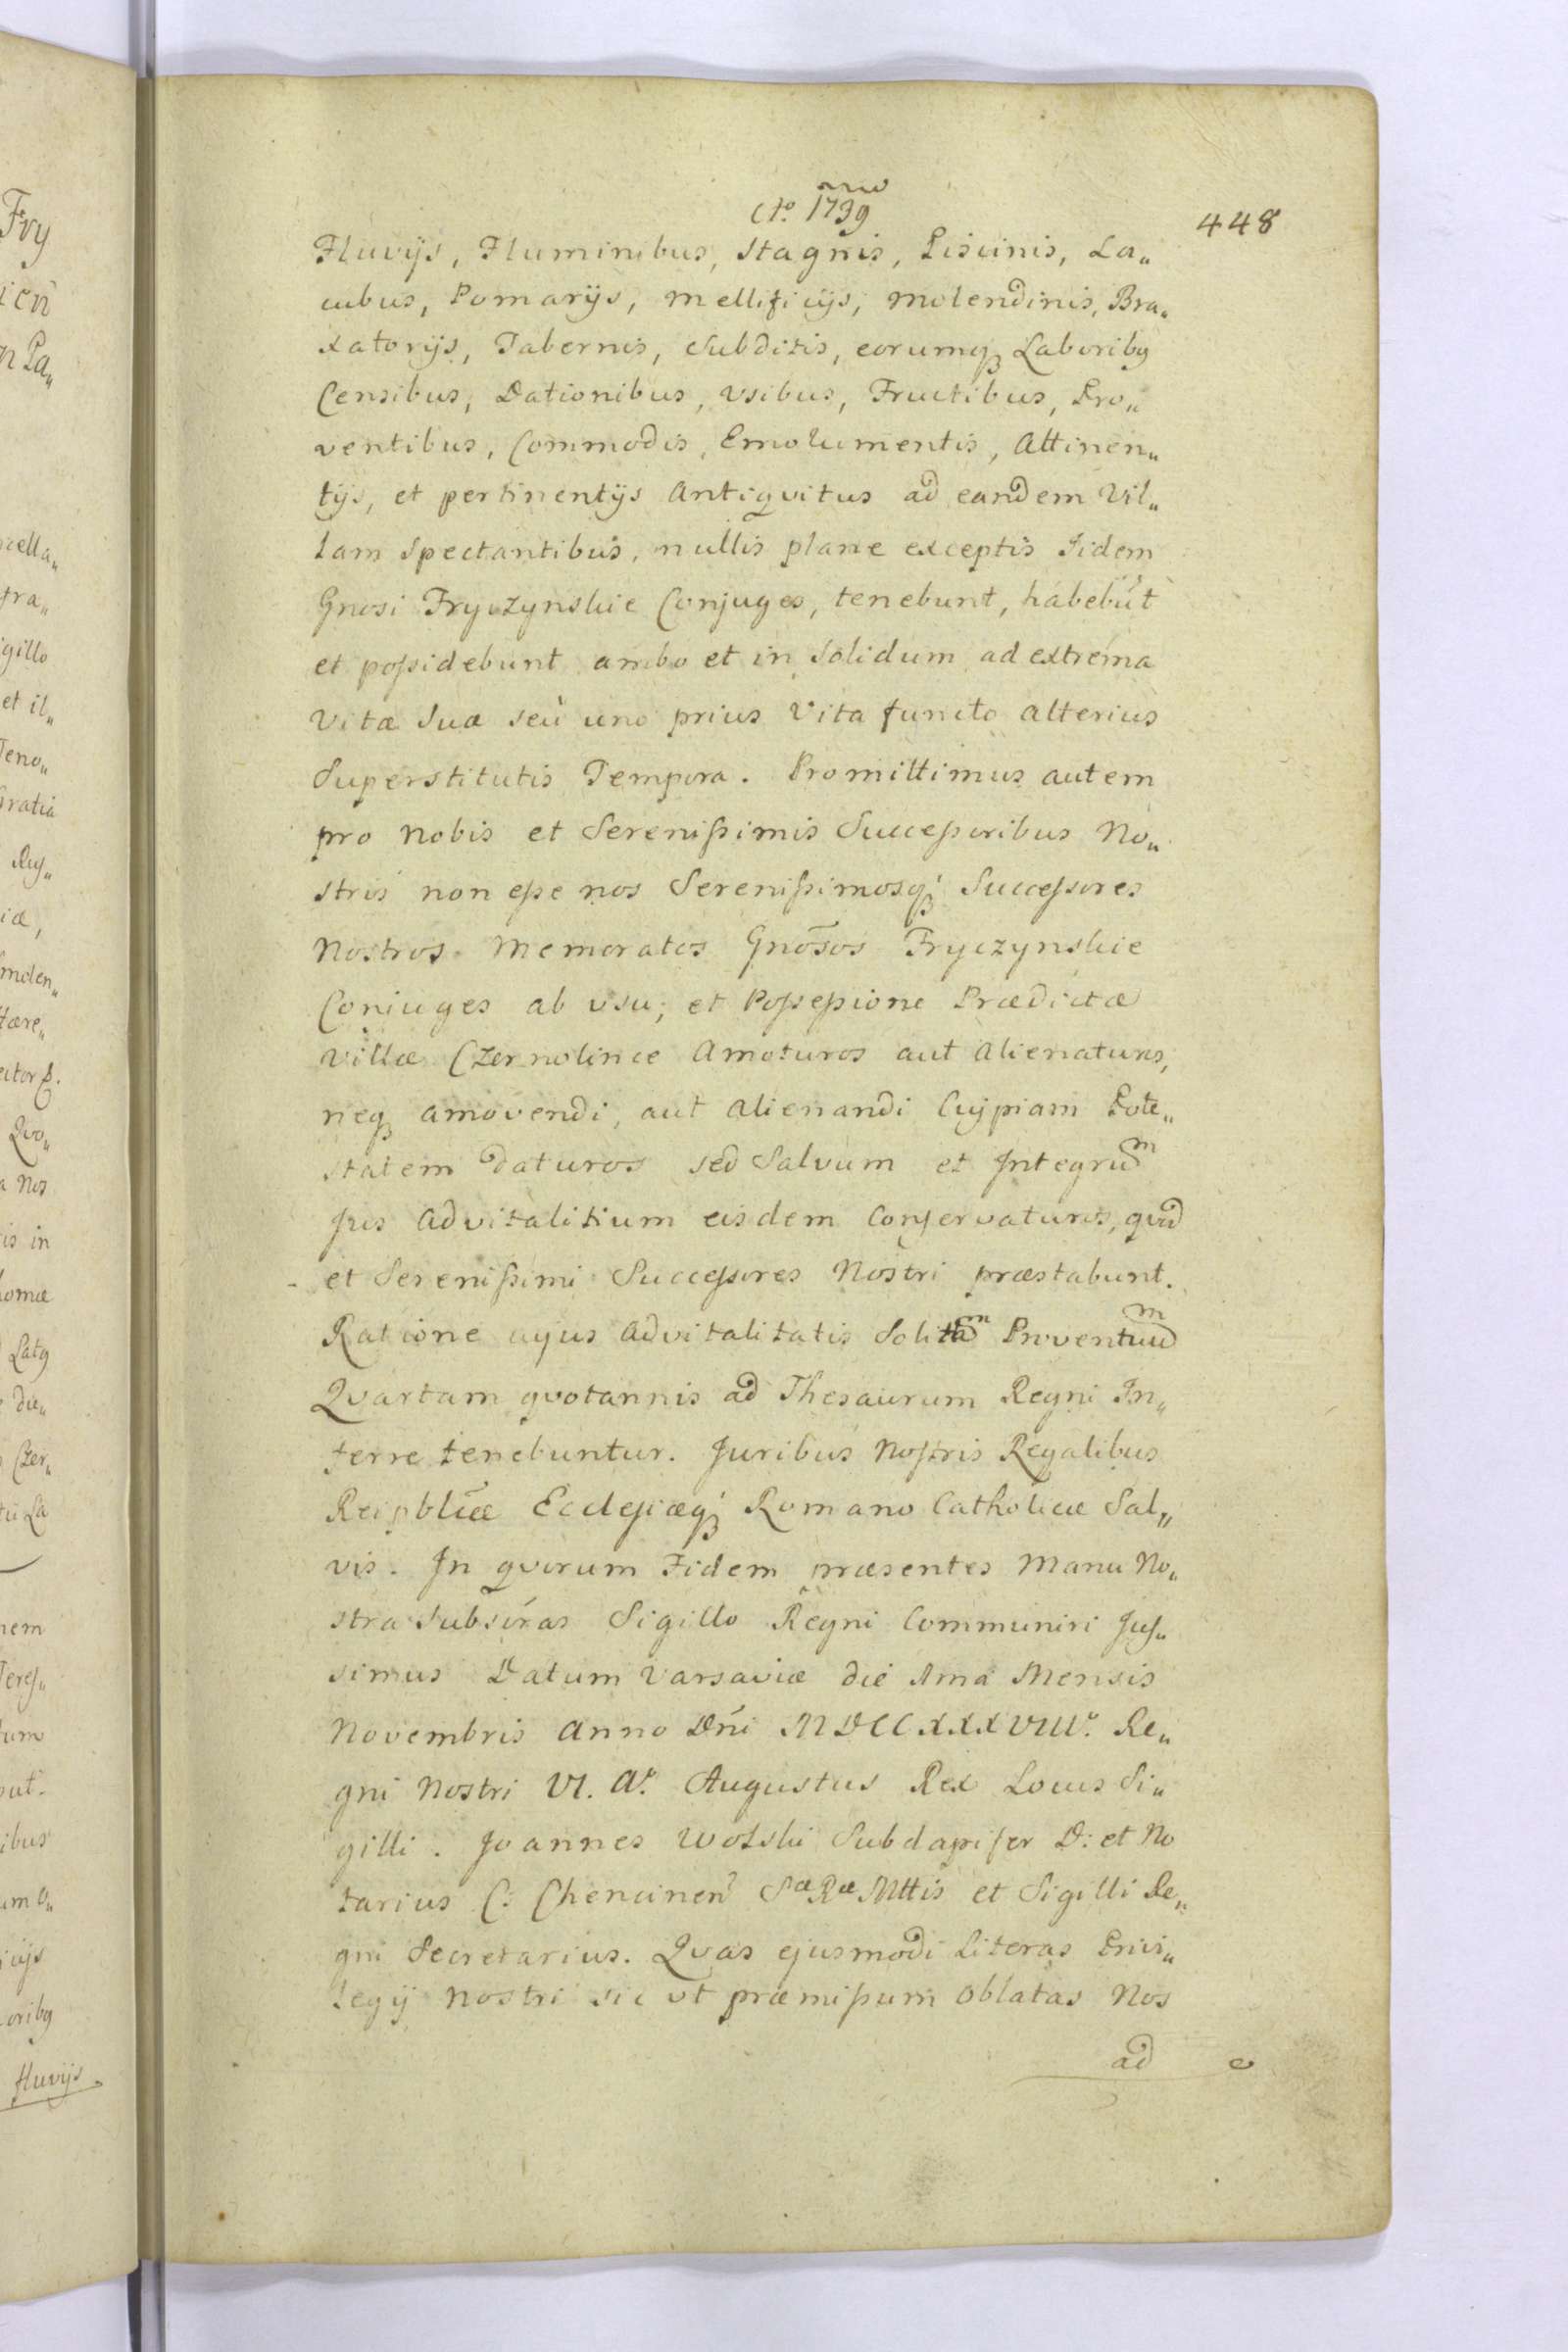 Ao. 1739
448
Fluvijs, Fluminibus, Stagnis, Piscinis, La„
cubus, Pomarijs, mellificijs, molendinis, Bra„
xatorijs, Tabernis, Subditis, eorumq3 Laboribq
Censibus, Dationibus, vsibus, Fructibus, Pro„
ventibus, Commodis, Emolumentis, Attinen„
tijs, et pertinentijs Antiqvitus ad eandem Vil„
lam Spectantibus, nullis plane exceptis Iidem
Gnosi Fryczynskie Conjuges, tenebunt, habebūt
et possidebunt ambo et in Solidum ad extrema
Vitæ Suæ seu uno prius Vita functo alterius
Superstitutis Tempora. Promittimus autem
pro Nobis et Serenissimis Successoribus No„
stris non esse nos Serenissimosq3 Successores
Nostros Memoratos Gnōsos Fryczynskie
Coniuges ab vsu, et Possessione Prædictæ
Villæ Czernolince Amoturos aut alienaturos,
neq3 amovendi, aut alienandi Cujpiam Pote„
statem daturos sed Salvum et Integrum
Jus advitalitium eisdem Conservaturos, qvod
et Serenissimi Successores Nostri præstabunt.
Ratione cujus Advitalitatis Solitam Proventuum
Qvartam qvotannis ad Thesaurum Regni In„
ferre tenebuntur. Juribus Nostris Regalibus
Reipblīcæ Ecclesiæq3 Romano Catholicæ Sal„
vis. In qvorum Fidem præsentes Manu No„
stra Subscras Sigillo Regni Communiri Jus„
simus Datum Varsaviæ die Ima Mensis
Novembris Anno Dni MDCCXXXVIIIo. Re„
gni Nostri VI. Ao. Augustus Rex Locus Si„
gilli. Joannes Wolski Subdapifer D: et No
tarius C: Chencinen Sæ Ræ Mttis et Sigilli Re„
gni Secretarius. Qvas ejusmodi Literas Privi„
legij nostri sic vt præmissum oblatas Nos
ad